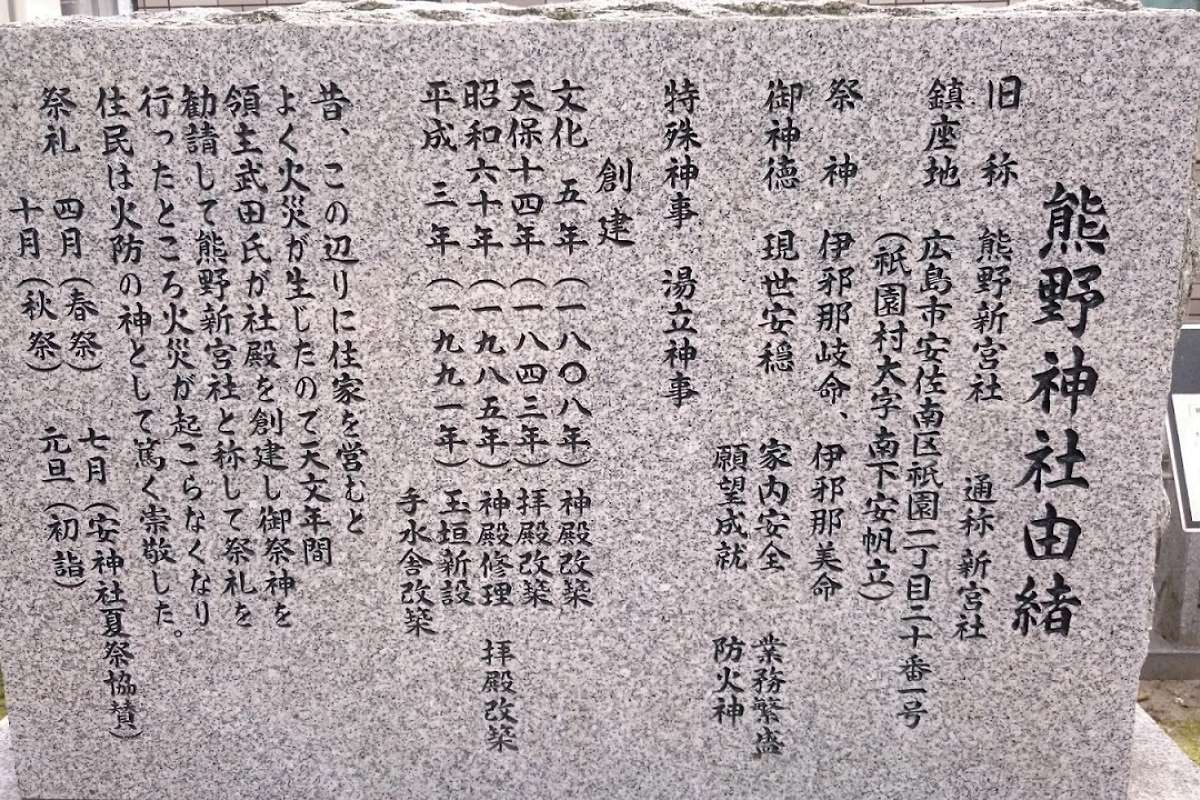 熊野神社由緒
旧称 熊野新宮社 通称 新宮社
鎮座地 広島市安佐南区祇園二丁目二十番一号
(祇園村大字南下安帆立)
祭神 伊邪那岐命、伊邪那美命
御神徳 現世安穏 家内安全 業務繁盛
願望成就 防火神
特殊神事 湯立神事
創建
文化 五年(一八〇八年)神殿改築
天保十四年(一八四三年)拝殿改築
昭和六十年(一九八五年)神殿修理 拝殿改築
平成 三年(一九九一年)玉垣新設
手水舎改築
昔、この辺りに住家を営むと
よく火災が生じたので天文年間
領主武田氏が社殿を創建し御祭神を
勧請して熊野新宮社と称して祭礼を
行ったところ火災が起こらなくなり
住民は火防の神として篤く崇敬した。
祭礼 四月(春祭) 七月(安神社夏祭協賛)
十月(秋祭) 元旦(初詣)